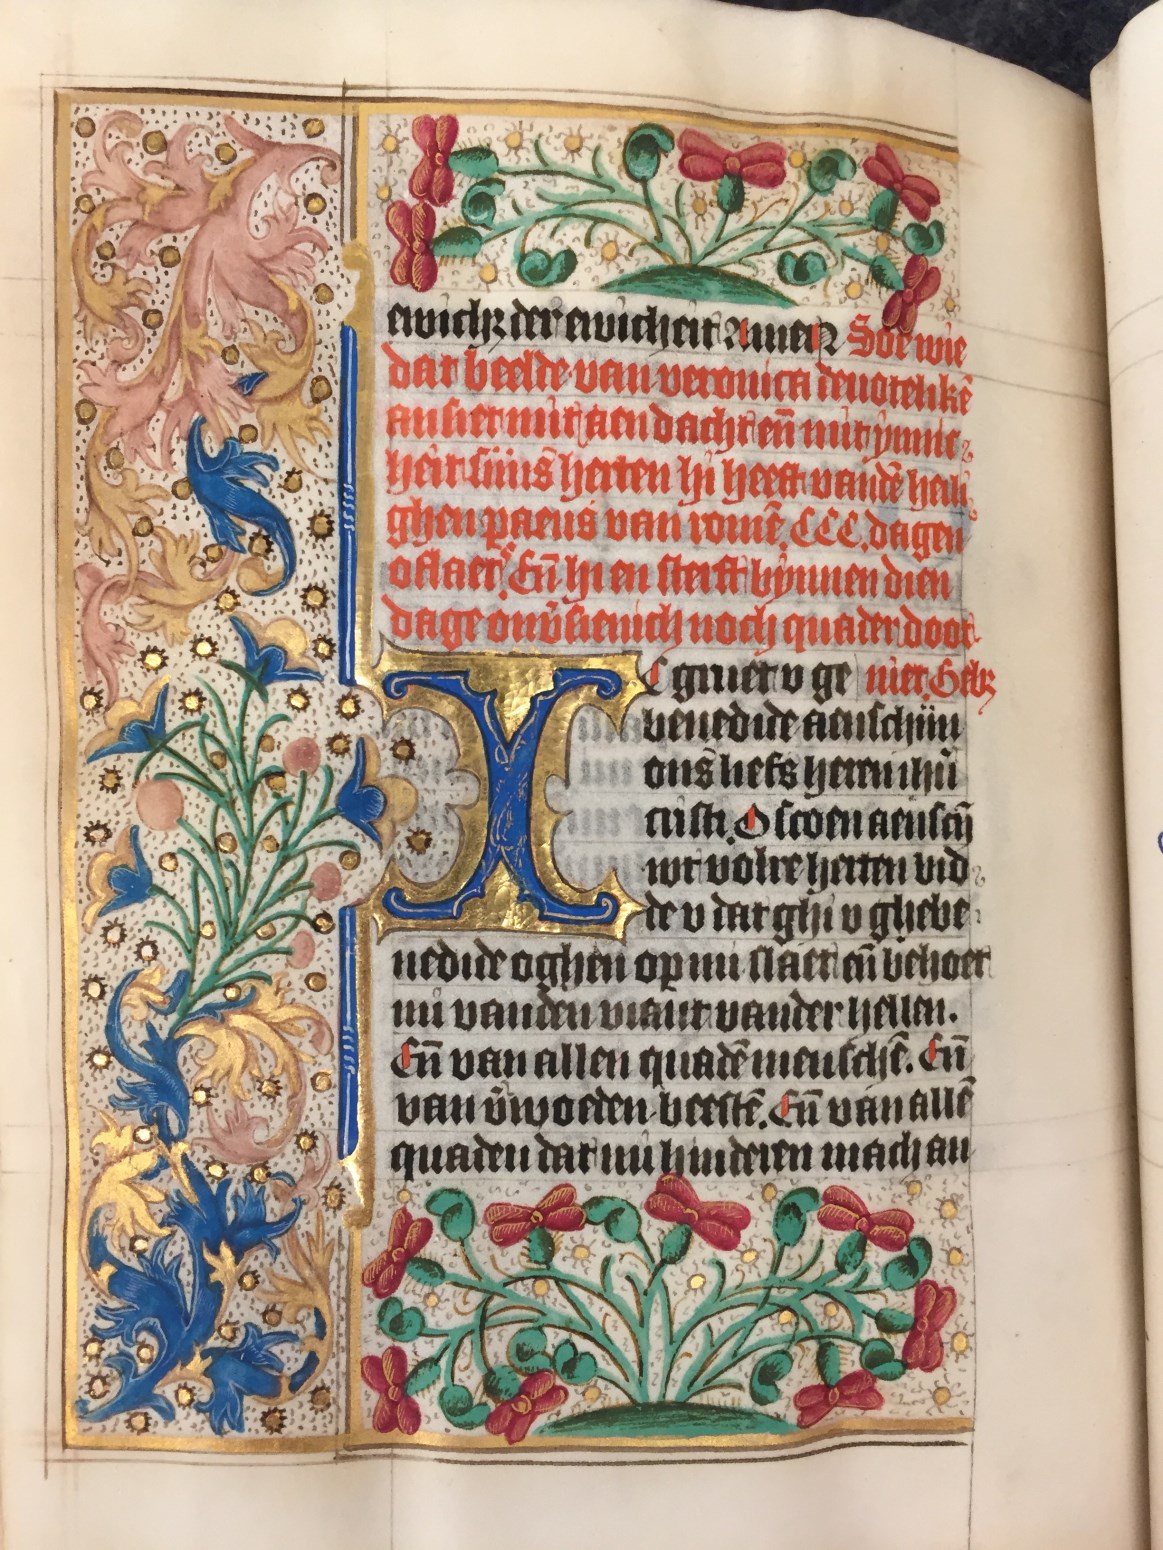 ewich₂ der ewicheit Amen Soe wie
dat beelde van veronica deuotelikē
ansiet mit aendacht eñ mit ynnic
heit sijns herten hi heeft vandē heili
ghen paeus van romē. CCC. dagen
oflaet. Eñ hi en sterft bynnen dien
dage onv̄sienich noch quader doot
niet. Geb₂
Ic gruet v ge
benedide aenschijn
ons liefs herren ihū
cristi. O scoen aenschy
wt volre herten bid
de v dat ghi v ghebe
nedide oghen op mi slaet eñ behoet
mi vanden viant vander hellen.
Eñ van allen quadē menschē. Eñ
van v̄woeden beestē. Eñ van allē
quaden dat mi hinderen mach an